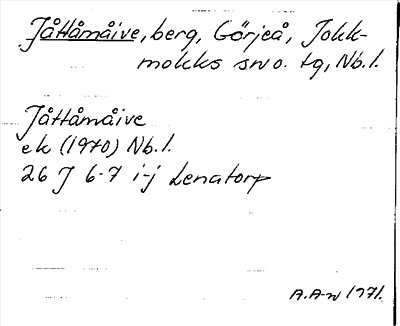 Jåttåmåive, berg, Görjeå, Jokk-
mokks sn o. tg, Nb.l.
Jåttåmåive
ek (1970) Nb.l.
26 J 6-7 i-j Lenatorp
A.A-n 1971.